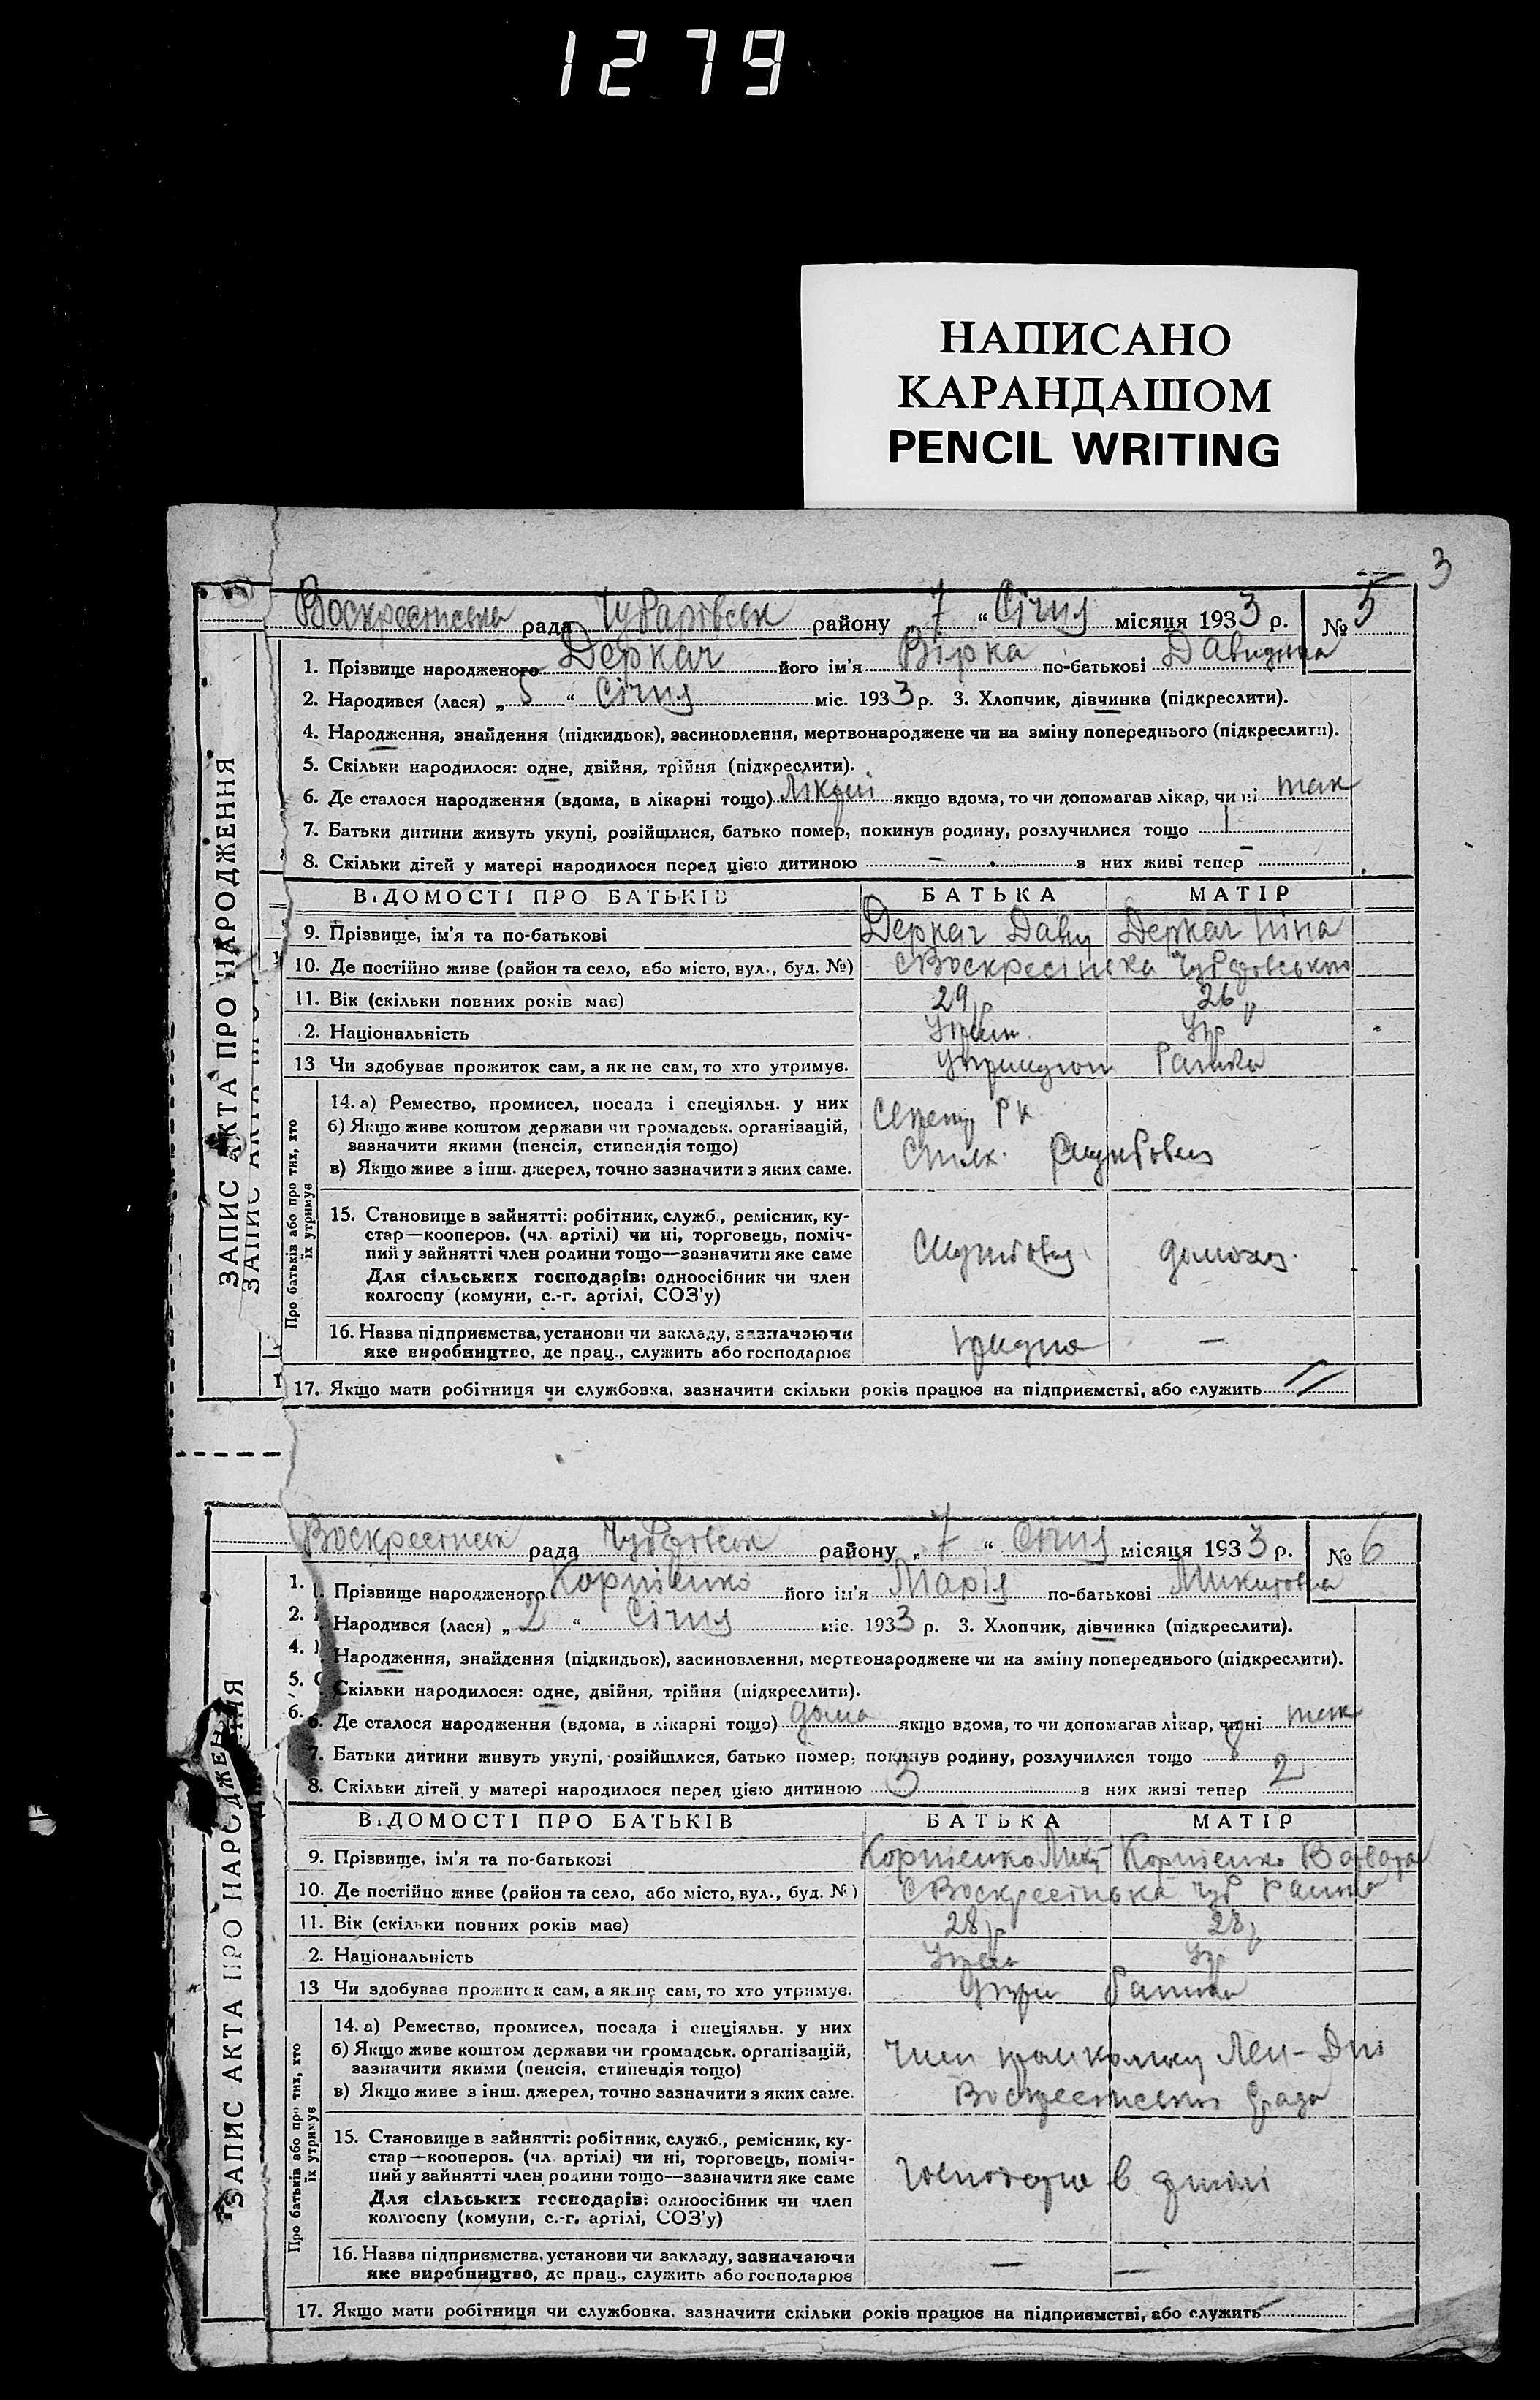 1279
НАПИСАНО
КАРАНДАШОМ
PENCIL WRITING
3
Воскресенська рада Чубарівськ району „ 7 “ Січня місяця 1933 р. № 5
1. Прізвище народженого Деркач його ім'я Вірка по-батькові Давидівна
2. Народився (лася) „ 5 “ Січня міс. 1933 р. 3. Хлопчик, дівчинка (підкреслити).
4. Народження, знайдення (підкидьок), засиновлення, мертвонароджене чи на зміну попереднього (підкреслити).
5. Скільки народилося: одне, двійня, трійня (підкреслити).
6. Де сталося народження (вдома, в лікарні тощо) якщо вдома, то чи допомагав лікар, чи ні так
7. Батьки дитини живуть укупі, розійшлися, батько помер, покинув родину, розлучилися тощо
8. Скільки дітей у матері народилося перед цією дитиною — з них живі тепер —
ВІДОМОСТІ ПРО БАТЬКІВ БАТЬКА МАТІР
9. Прізвище, ім'я та по-батькові Деркач Давид Деркач Ніна
10. Де постійно живе (район та село, або місто, вул., буд. №) с Воскресінська
11. Вік (скільки повних років має) 29 р 26 р
2. Національність Україн. Укр
13 Чи здобував прожиток сам, а як не сам, то хто утримує.
Про батьків або про тих, хто їх утримує
14. а) Ремество, промисел, посада і спеціяльн. у них
б) Якщо живе коштом держави чи громадськ. організацій,
зазначити якими (пенсія, стипендія тощо)
в) Якщо живе з інш. джерел, точно зазначити з яких саме.
15. Становище в зайнятті: робітник, служб., ремісник, ку-
стар—кооперов. (чл. артілі) чи ні, торговець, поміч-
ний у зайнятті член родини тощо—зазначити яке саме
Для сільських господарів: одноосібник чи член
колгоспу (комуни, с.-г. артілі, СОЗ'у)
Службовец домохоз.
16. Назва підприємства, установи чи закладу, зазначаючи
яке виробництво, де прац., служить або господарює —
17. Якщо мати робітниця чи службовка, зазначити скільки років працює на підприємстві, або служить
ЗАПИС АКТА ПРО НАРОДЖЕННЯ
Воскресенськ рада Чубарівськ району „ 7 “ Січня місяця 1933 р. № 6
1. Прізвище народженого Корнієнко його ім'я Марія по-батькові Микитовна
2. Народився (лася) „ 2 “ Січня міс. 1933 р. 3. Хлопчик, дівчинка (підкреслити).
4. Народження, знайдення (підкидьок), засиновлення, мертвонароджене чи на зміну попереднього (підкреслити).
5. Скільки народилося: одне, двійня, трійня (підкреслити).
6. Де сталося народження (вдома, в лікарні тощо) дома якщо вдома, то чи допомагав лікар, чи ні так
7. Батьки дитини живуть укупі, розійшлися, батько помер, покинув родину, розлучилися тощо
8. Скільки дітей у матері народилося перед цією дитиною 3 з них живі тепер 2
ВІДОМОСТІ ПРО БАТЬКІВ БАТЬКА МАТІР
9. Прізвище, ім'я та по-батькові Корнієнко Микит Корнієнко Варвара
10. Де постійно живе (район та село, або місто, вул., буд. №) с Воскресінька Чуб
11. Вік (скільки повних років має) 28 р 28 р
2. Національність Укр
13 Чи здобував прожиток сам, а як не сам, то хто утримує.
Про батьків або про тих, хто їх утримує
14. а) Ремество, промисел, посада і спеціяльн. у них
б) Якщо живе коштом держави чи громадськ. організацій,
зазначити якими (пенсія, стипендія тощо)
в) Якщо живе з інш. джерел, точно зазначити з яких саме.
15. Становище в зайнятті: робітник, служб., ремісник, ку-
стар—кооперов. (чл. артілі) чи ні, торговець, поміч-
ний у зайнятті член родини тощо—зазначити яке саме
Для сільських господарів: одноосібник чи член
колгоспу (комуни, с.-г. артілі, СОЗ'у)
в артілі
16. Назва підприємства, установи чи закладу, зазначаючи
яке виробництво, де прац., служить або господарює — —
17. Якщо мати робітниця чи службовка, зазначити скільки років працює на підприємстві, або служить
ЗАПИС АКТА ПРО НАРОДЖЕННЯ